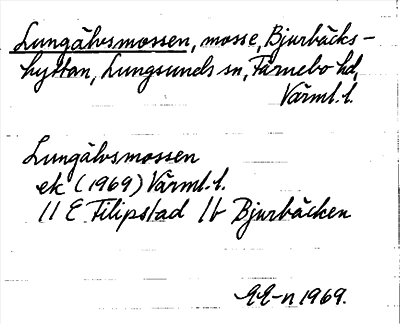 Lungälvsmossen, mosse, Bjurbäcks-
hyttan, Lungsunds sn, Färnebo hd,
Värml. l.
Lungälvsmossen
ek (1969) Värml. l.
11 E Filipstad 1b Bjurbäcken
1969.